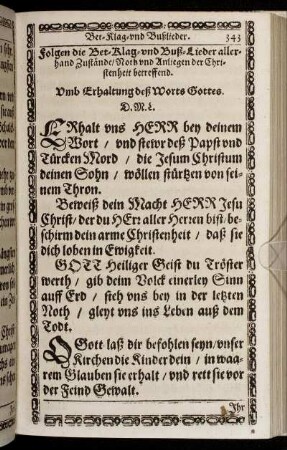 Bet-Klag-vnd Bußlieder. 343
Folgen die Bet-Klag-vnd Buß-Lieder aller-
hand Zustände/Noth vnd Anligen der Chri-
stenheit betreffend.
Vmb Erhaltung deß Worts Gottes.
D. M. L.
ERhalt vns HERR bey deinem
Wort / vnd stewr deß Papst vnd
Türcken Mord / die Jesum Christum
deinen Sohn / wöllen stürtzen von sei-
nem Thron.
Beweiß dein Macht HERR Jesu
Christ/der du Herr aller Herren bist/be-
schirm dein arme Christenheit / daß sie
dich loben in Ewigkeit.
GOTT Heiliger Geist du Tröster
werth / gib deim Volck einerley Sinn
auff Erd / steh vns bey in der letzten
Noth / gleyt vns ins Leben auß dem
Todt.
O Gott laß dir befohlen seyn/vnser
Kirchen die Kinder dein / in waa-
rem Glauben sie erhalt / vnd rett sie vor
der Feind Gewalt.
Ihr